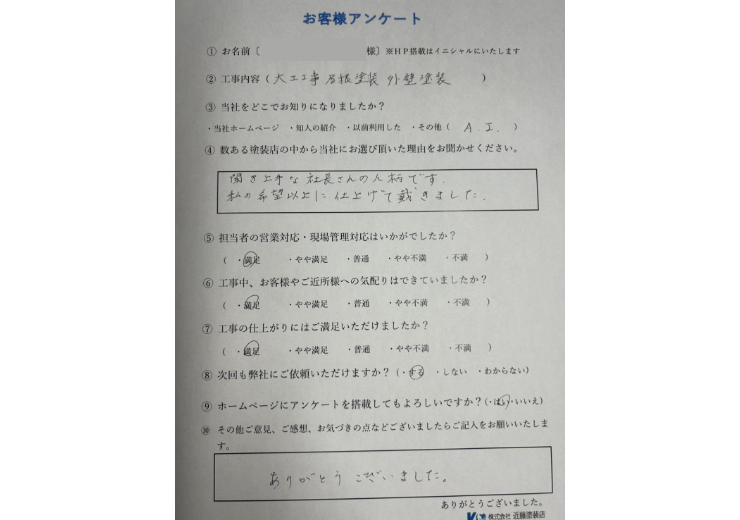 お客様アンケート
① お名前〔 様〕※HP搭載はイニシャルにいたします
② 工事内容（大工工事 屋根塗装 外壁塗装 ）
③ 当社をどこでお知りになりましたか？
・当社ホームページ ・知人の紹介 ・以前利用した ・その他（ A.I. ）
④ 数ある塗装店の中から当社にお選び頂いた理由をお聞かせください。
聞き上手な社長さんの人柄です.
私の希望以上に仕上げて戴きました.
⑤ 担当者の営業対応・現場管理対応はいかがでしたか？
（ ・満足 ・やや満足 ・普通 ・やや不満 ・不満 ）
⑥ 工事中、お客様やご近所様への気配りはできていましたか？
（ ・満足 ・やや満足 ・普通 ・やや不満 ・不満 ）
⑦ 工事の仕上がりにはご満足いただけましたか？
（ ・満足 ・やや満足 ・普通 ・やや不満 ・不満 ）
⑧ 次回も弊社にご依頼いただけますか？（・する ・しない ・わからない）
⑨ ホームページにアンケートを搭載してもよろしいですか？（・はい・いいえ）
⑩ その他ご意見、ご感想、お気づきの点などございましたらご記入をお願いいたしま
す。
ありがとうございました。
ありがとうございました。
株式会社 近藤塗装店